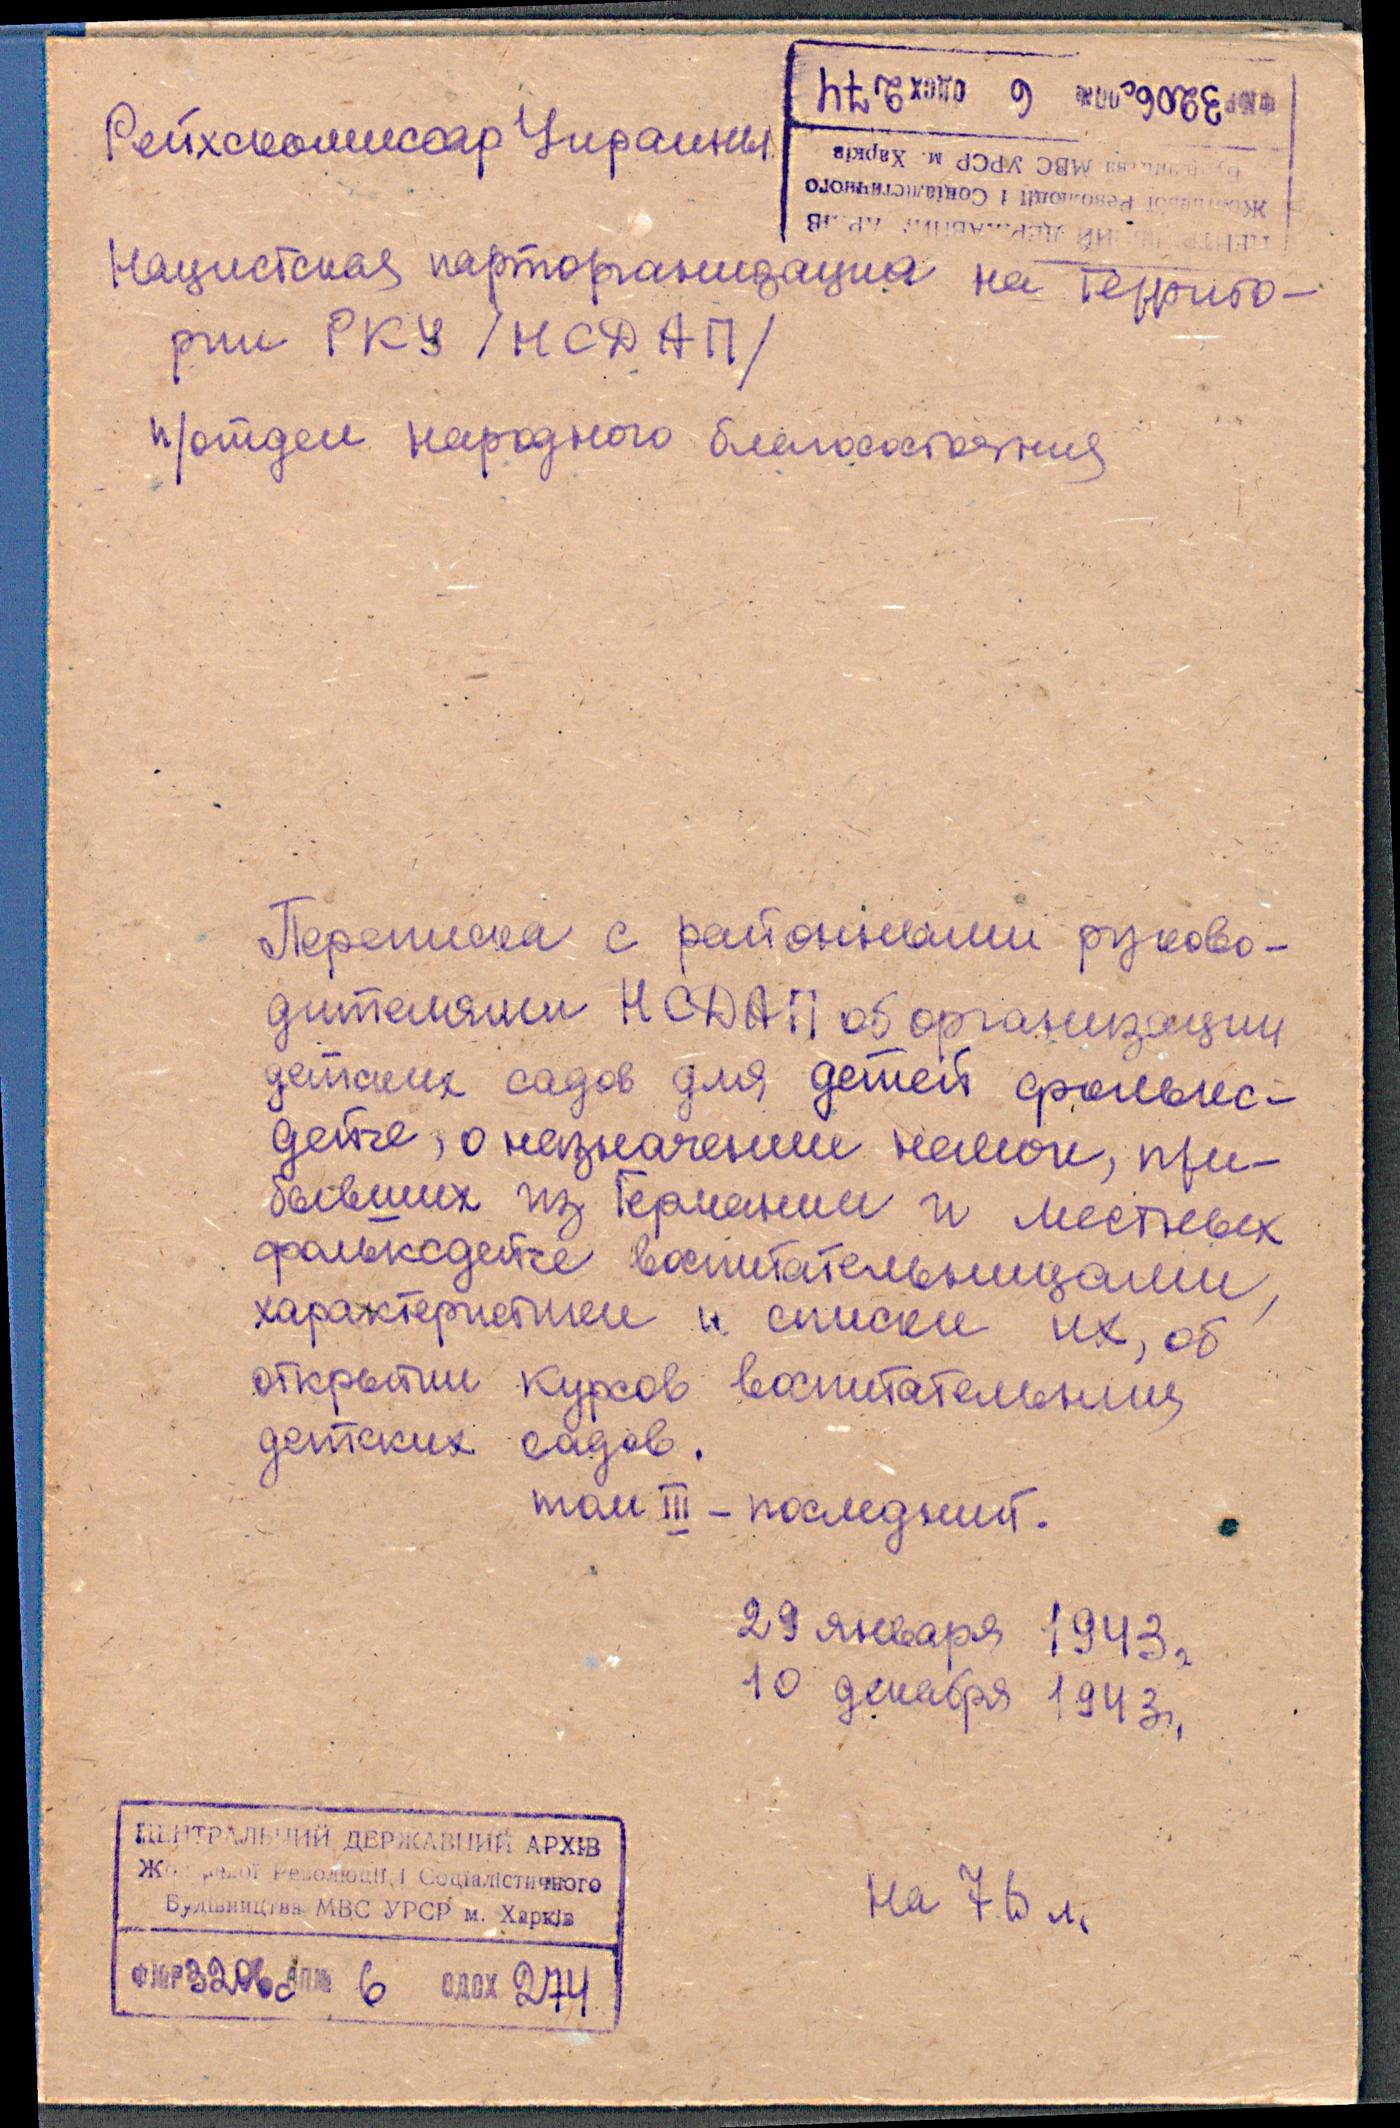 Рейхскомиссар Украины
ФЮР 3206с ОП№ 6 ОДСХ 274
ЦЕНТРАЛЬНИЙ ДЕРЖАВНИЙ АРХІВ
Жовтневої Революції і Соціалістичного
Будівництва МВС УРСР м. Харків
Нацистская парторганизация на террито-
рии РКУ /НСДАП/
п/отдел народного благосостояния
Переписка с районными руково-
дителями НСДАП об организации
детских садов для детей фолькс-
дейче, о назначении немок, при-
бывших из Германии и местных
фольксдейче воспитательницами,
характеристики и списки их, об
открытии курсов воспитательниц
детских садов.
том III – последний.
29 января 1943г
10 декабря 1943г.
ЦЕНТРАЛЬНИЙ ДЕРЖАВНИЙ АРХІВ
Жовтневої Революції і Соціалістичного
Будівництва МВС УРСР м. Харків
На 76 л.
ФЮР 3206с ОП№ 6 ОДСХ 274